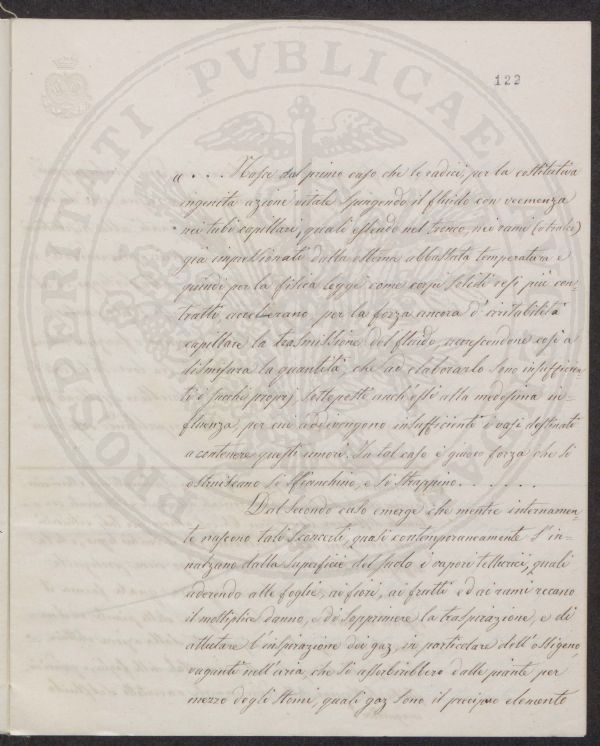 122
PROSPERITATI PVBLICAE
« . . . Nasce dal primo caso che le radici per la costitutiva
ingenita azione vitale spingendo il fluido con veemenza
nei tubi capillari, quali essendo nel tronco, nei rami
già impressionati dalla esterna abbassata temperatura e
quindi per la fisica legge come corpi solidi resi più con-
tratti accelerano per la forza ancora d'irritabilità
capillare la trasmissione del fluido, accrescendone così a
dismisura la quantità, che ad elaborarlo sono insufficien-
ti i succhi proprj sottoposti anch'essi alla medesima in-
fluenza, per cui addivengono insufficienti i vasi destinati
a contenere questi umori. In tal caso è giuoco forza che si
ostruiscano si sfianchino, e si strappino . . . . . .
Dal secondo caso emerge che mentre internamen-
te nascono tali sconcerti, quali contemporaneamente s'in-
nalzano dalla superficie del suolo i vapori tellurici, quali
aderendo alle foglie, ai fiori, ai frutti ed ai rami recano
il moltiplice danno, e di sopprimere la traspirazione, e di
attutare l'inspirazione dei gaz, in particolare dell'ossigeno
vagante nell'aria, che si assorbirebbero dalle piante per
mezzo degli stomi, quali gaz sono il precipuo elemento